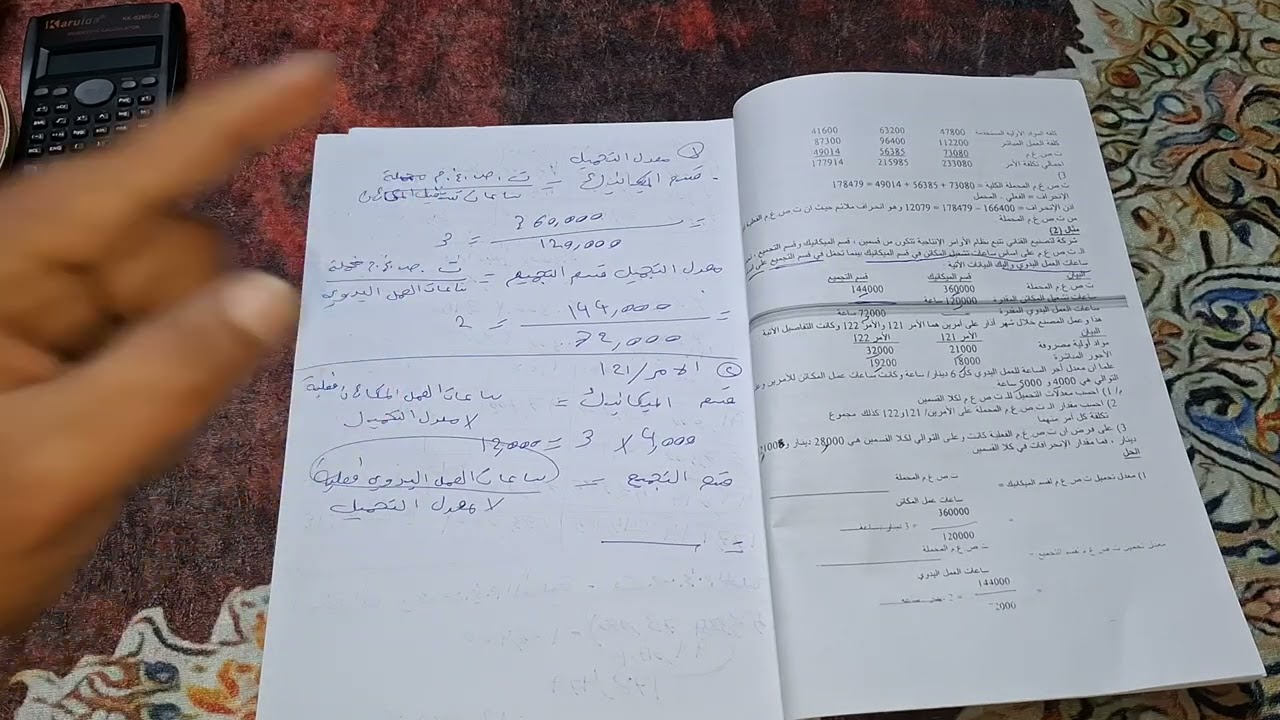 Karuida
KK-82MS-D
كلفه المواد الأولية المستخدمة 47800 63200 41600
كلفة العمل المباشر 112200 96400 87300
ت ص غ م 73080 56385 49014
اجمالي تكلفة الأمر 233080 215985 177914
3)
ت ص غ م المحملة الكلية = 73080 + 56385 + 49014 = 178479
الإنحراف = الفعلي - المحمل
اذن الإنحراف = 166400 - 178479 = 12079 وهو انحراف ملائم حيث ان ت ص غ م الفعلية
من ت ص غ م المحملة
مثال (2)
شركة لتصنيع القناني تتبع نظام الأوامر الإنتاجية تتكون من قسمين ، قسم الميكانيك وقسم التجميع ،
الـ ت ص غ م على اساس ساعات تشغيل المكائن في قسم الميكانيك بينما تحمل في قسم التجميع على
ساعات العمل اليدوي واليك البيانات الأتية
البيان قسم الميكانيك قسم التجميع
ت ص غ م المحملة 360000 144000
ساعات تشغيل المكائن المقدرة 120000 ساعة
ساعات العمل اليدوي المقدرة 72000 ساعة
هذا وعمل المصنع خلال شهر أذار على أمرين هما الأمر 121 والأمر 122 وكانت التفاصيل الأتية
البيان الأمر 121 الأمر 122
مواد أولية مصروفة 21000 32000
الأجور المباشرة 18000 19200
علما ان معدل أجر الساعة للعمل اليدوي كان 6 دينار/ ساعة وكانت ساعات عمل المكائن للأمرين
التوالي هي 4000 و 5000 ساعة
م/ 1) احسب معدلات التحميل للـ ت ص غ م لكلا القسمين
2) احسب مقدار الـ ت ص غ م المحملة على الأمرين/ 121و122 كذلك مجموع
تكلفة كل أمر منهما
3) على فرض ان ت ص غ م الفعلية كانت وعلى التوالي لكلا القسمين هي 28000 دينار و
دينار ، فما مقدار الإنحرافات في كلا القسمين
الحل
1) معدل تحميل ت ص غ م لقسم الميكانيك = ت ص غ م المحملة
ساعات عمل المكائن
= 360000
120000 = 3
معدل تحميل ت ص غ م لقسم التجميع = ت ص غ م المحملة
ساعات العمل اليدوي
= 144000
72000 = 2
① معدل التحميل
قسم الميكانيك = ت . ص . غ . م محملة
ساعات تشغيل المكائن
= 360,000
120,000 = 3
معدل التحميل قسم التجميع = ت . ص . غ . م محملة
ساعات العمل اليدوي
= 144,000
72,000 = 2
② الامر / 121
قسم الميكانيك = ساعات العمل المكائن فعلية
× معدل التحميل
4,000 × 3 = 12,000
قسم التجميع = ساعات العمل اليدوي فعلية
× معدل التحميل
=